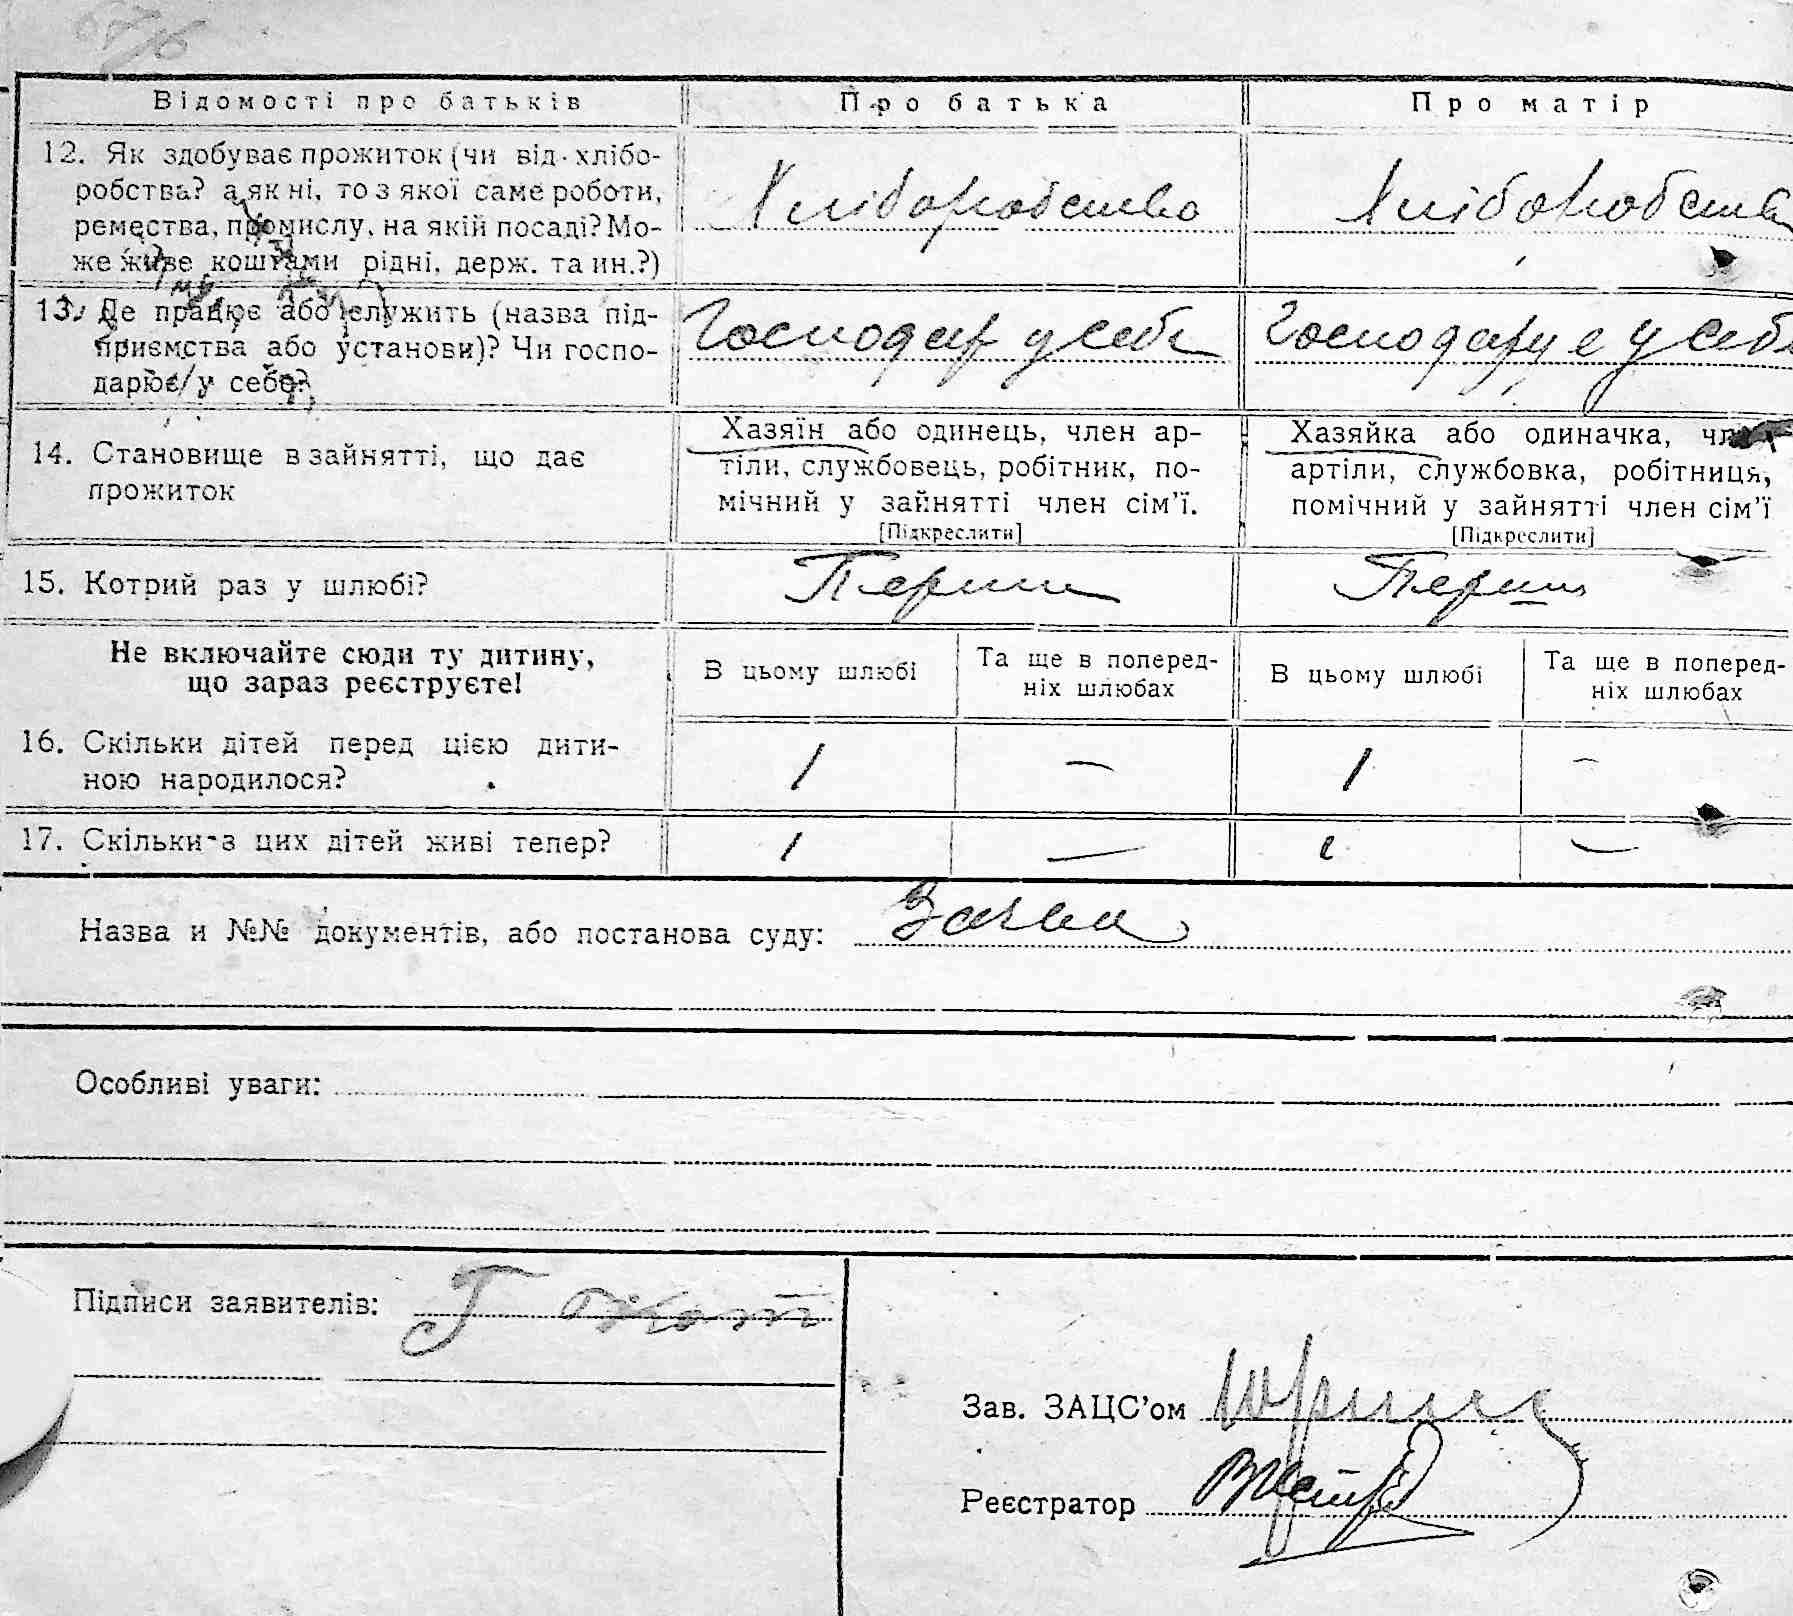 Відомості про батьків Про батька Про матір
12. Як здобуває прожиток (чи від хлібо-
робства? а як ні, то з якої саме роботи,
ремества, промислу, на якій посаді? Мо-
же живе коштами рідні, держ. та ин.?)
Хліборобство Хліборобства
13. Де працює або служить (назва під-
приємства або установи)? Чи госпо-
дарює у себе?
Господар у себе Господарує у себе
14. Становище в зайнятті, що дає
прожиток
Хазяїн або одинець, член ар-
тіли, службовець, робітник, по-
мічний у зайнятті член сім'ї.
[Підкреслити]
Хазяйка або одиначка, член
артіли, службовка, робітниця,
помічний у зайнятті член сім'ї
[Підкреслити]
15. Котрий раз у шлюбі? Перший Перший
Не включайте сюди ту дитину,
що зараз реєструєте!
В цьому шлюбі Та ще в поперед-
ніх шлюбах
В цьому шлюбі Та ще в поперед-
ніх шлюбах
16. Скільки дітей перед цією дити-
ною народилося?
1 — 1 —
17. Скільки з цих дітей живі тепер? 1 — 1 —
Назва и №№ документів, або постанова суду: Заява
Особливі уваги:
Підписи заявителів:
Зав. ЗАЦС'ом
Реєстратор